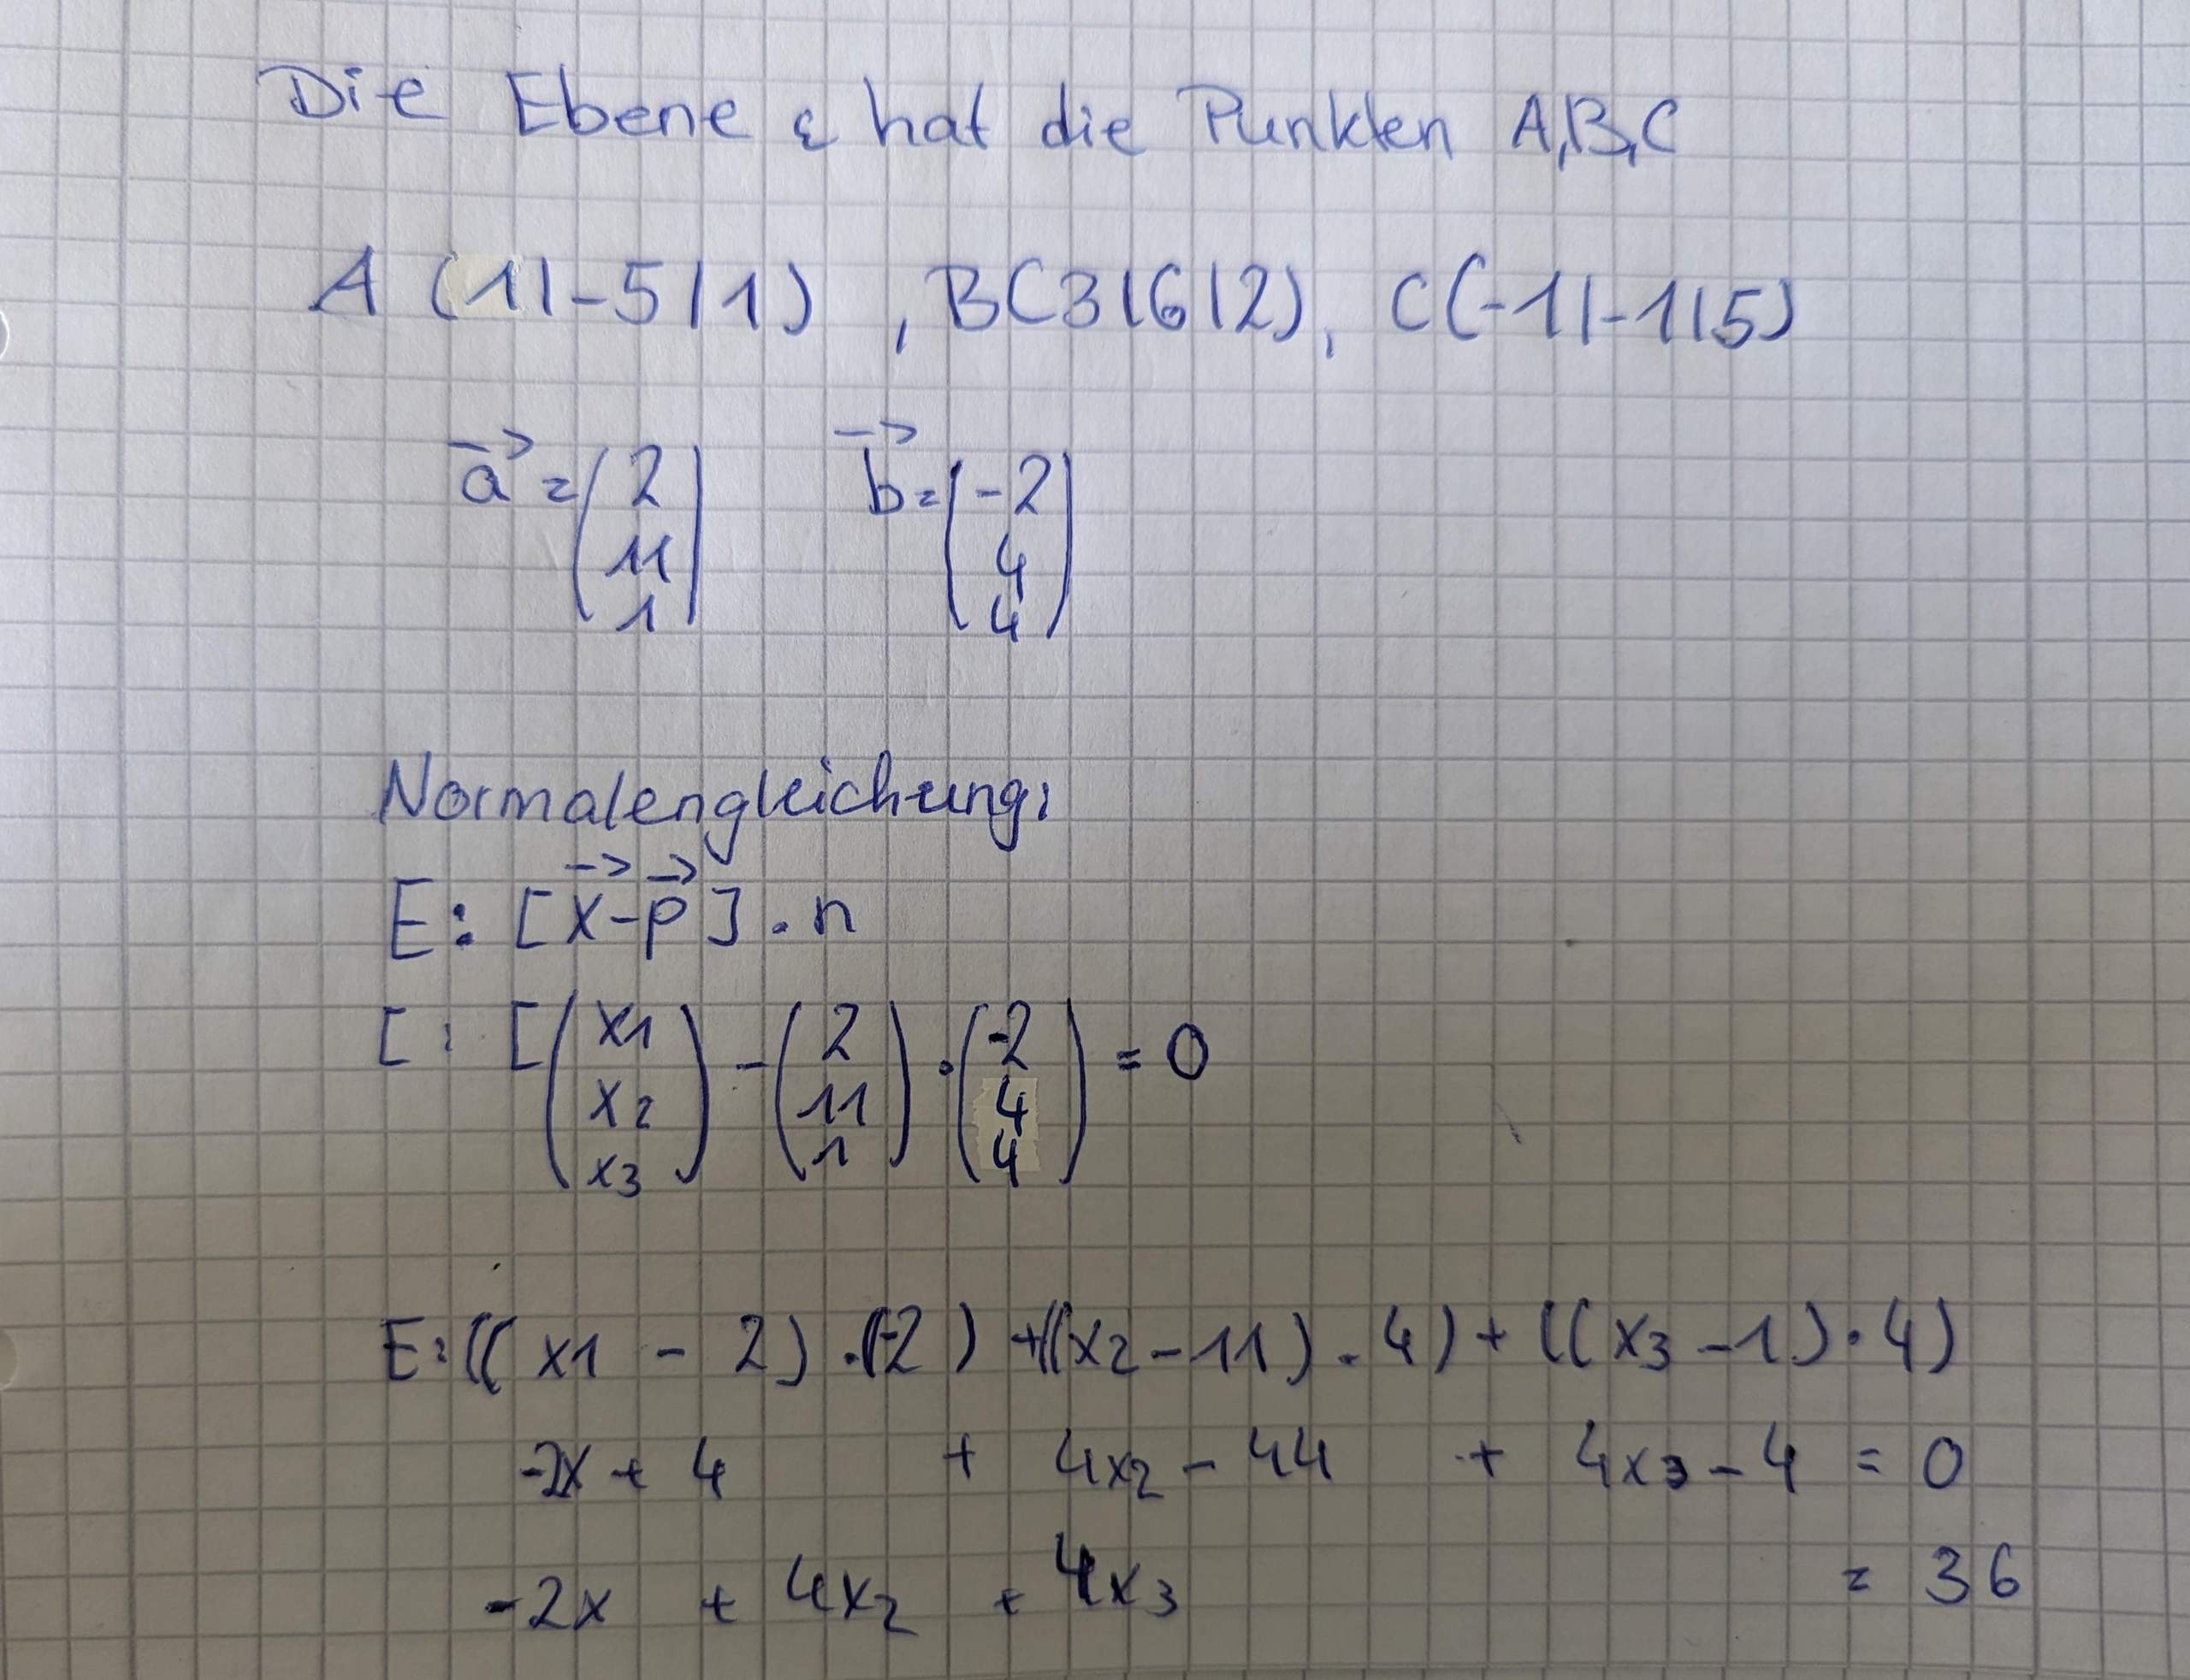 Die Ebene ε hat die Punkten A,B,C
A (1|-5|1) , B(3|6|2), C(-1|-1|5)
a⃗ = (2 11 1) b⃗ = (-2 4 4)
Normalengleichung:
E: [x⃗-p⃗] · n
E: [(x1 x2 x3) - (2 11 1) · (-2 4 4) = 0
E: ((x1 - 2) · (-2) + ((x2 - 11) · 4) + ((x3 - 1) · 4)
-2x + 4 + 4x2 - 44 + 4x3 - 4 = 0
-2x + 4x2 + 4x3 = 36